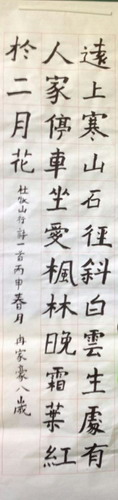 遠上寒山石徑斜白雲生處有
人家停車坐愛楓林晚霜葉紅
於二月花
杜牧山行詩一首丙申春月冉家豪八歲